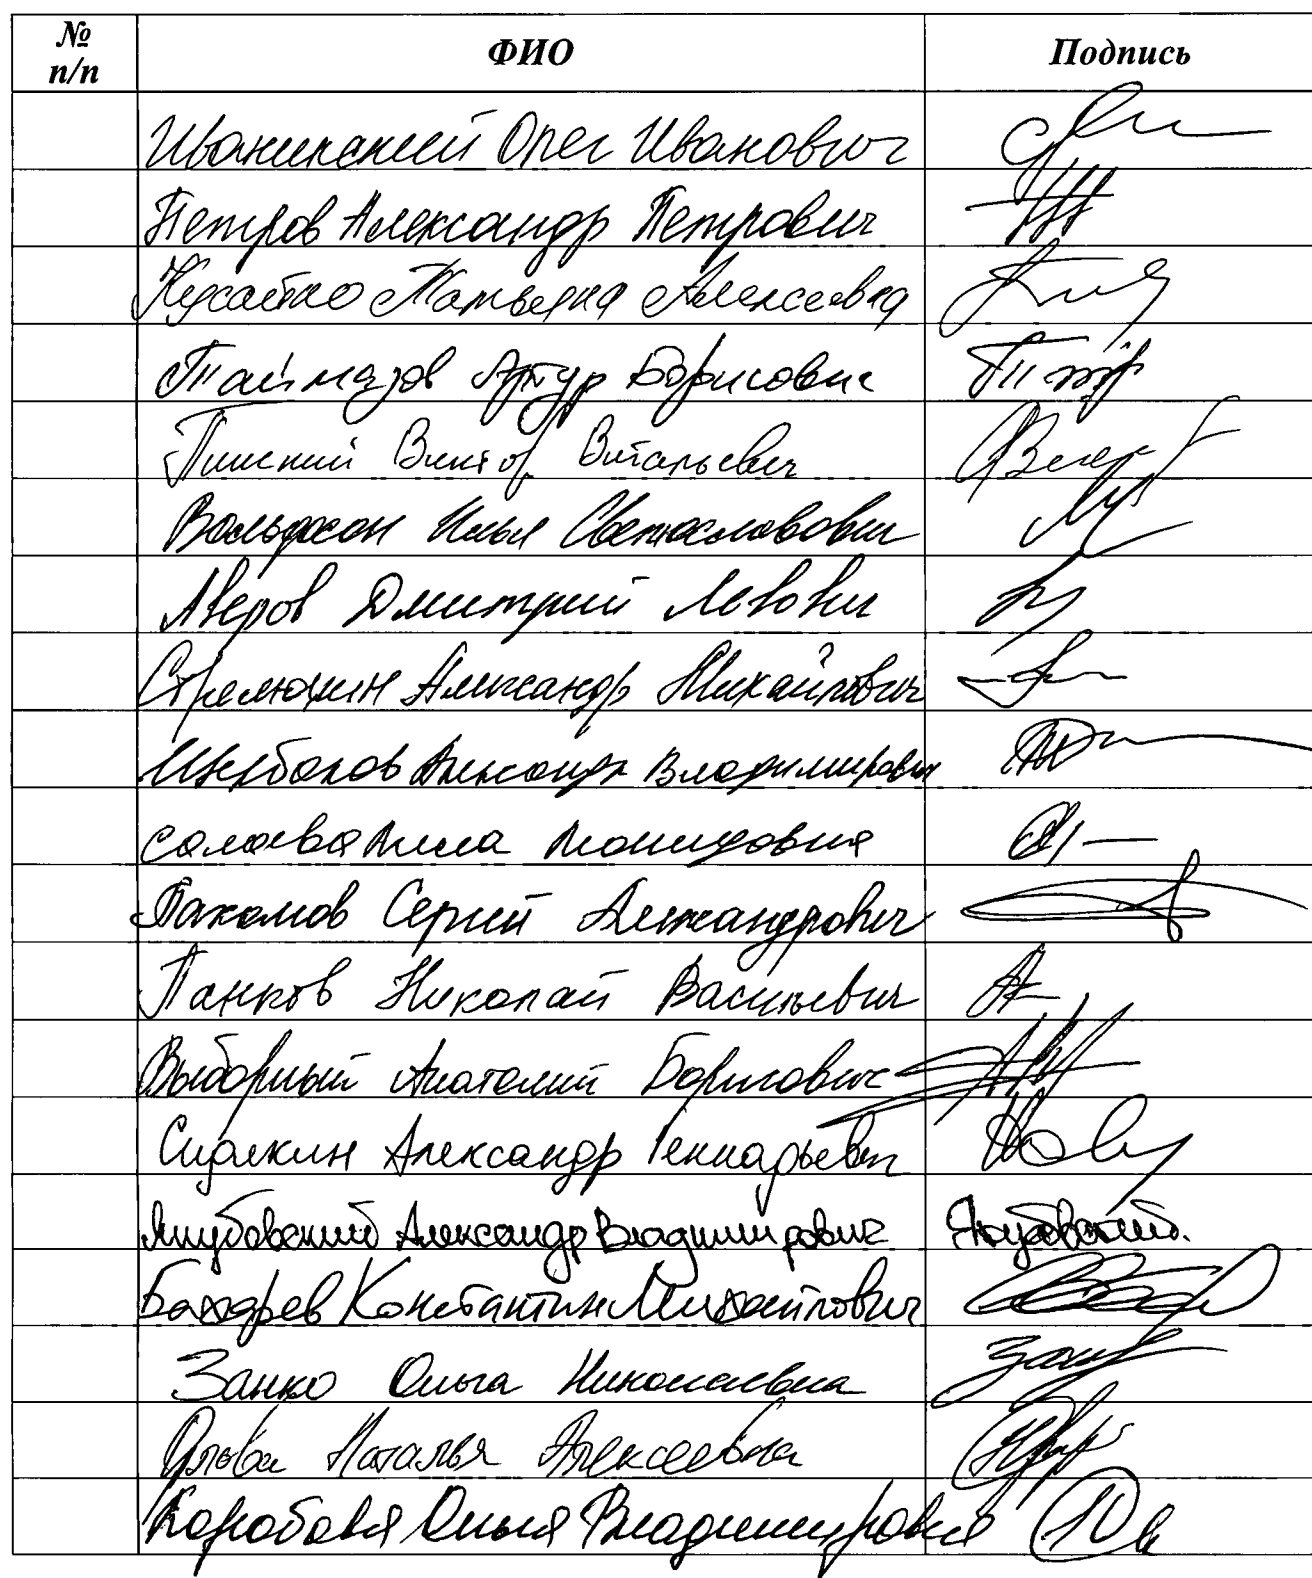 № п/п ФИО Подпись
Иванинский Олег Иванович
Петров Александр Петрович
Кусайко Татьяна Алексеевна
Таймазов Артур Борисович
Пинский Виктор Витальевич
Вольфсон Илья Светославович
Аверов Дмитрий
Стрелюхин Александр Михайлович
Щербаков Александр Владимирович
Леонидовна
Пахомов Сергей Александрович
Панков Николай Васильевич
Выборный Анатолий Борисович
Сидякин Александр Геннадьевич
Якубовский Александр Владимирович Якубовский.
Бахарев Константин Михайлович
Занко Ольга Николаевна
Орлова Наталья Алексеевна
Коробова Ольга Владимировна